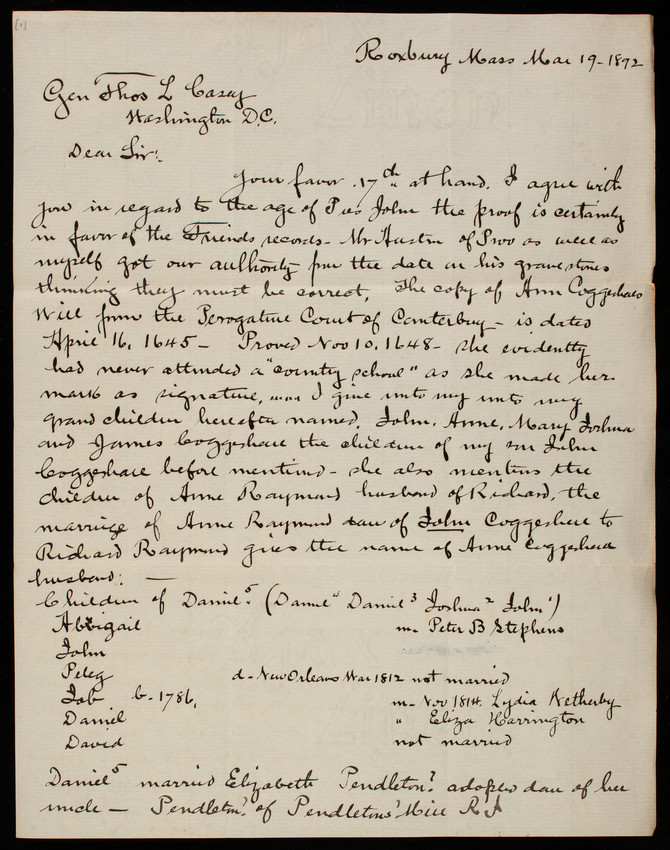 [1]
Roxbury Mass Mar 19-1892
Gen Thos L Casey
Washington D.C.
Dear Sir:
Your favor 17th at hand. I agree with
you in regard to the age of Pres John the proof is certainly
in favor of the Friends records - Mr Austin of Prov as well as
myself got our authority from the date on his gravestones
thinking they must be correct, The copy of Ann Coggeshalls
Will from the Perogative Court of Canterbury - is dated
April 16, 1645 - Proved Nov 10, 1648 - she evidently
had never attended a "country school" as she made her
mark as signature, .... I give unto my unto my
grand children hereafter named, John, Anne, Mary Joshua
and James Coggeshall the children of my son John
Coggeshall before mentioned - she also mentions the
children of Anne Raymond husband of Richard, the
marriage of Anne Raymond dau of John Coggeshall to
Richard Raymond gives the name of Anne Coggeshall
husband: —
Children of Daniel5. (Daniel4 Daniel3 Joshua2 John1)
Abbigail m- Peter B Stephens
John
Peleg d- New Orleans War 1812 not married
Job b- 1786, m- Nov 1814. Lydia Netherby
Daniel " Eliza Harrington
David not married
Daniel5 married Elizabeth Pendleton? adopted dau of her
uncle — Pendleton? of Pendletons? Mill R.I